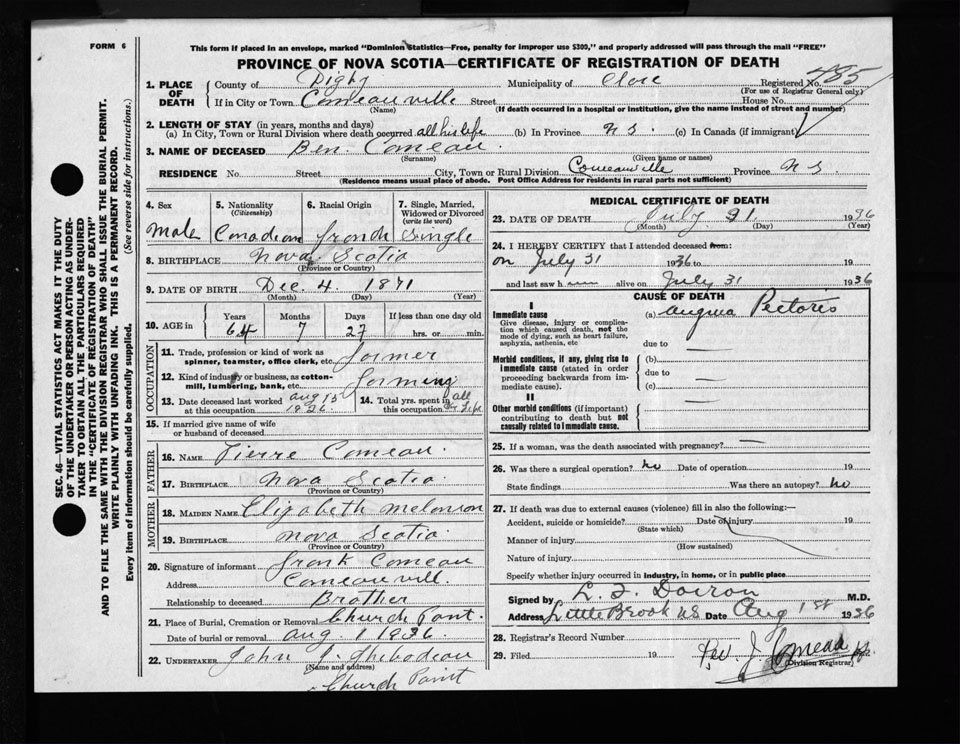 FORM 6
This form if placed in an envelope, marked "Dominion Statistics—Free, penalty for improper use $300," and properly addressed will pass through the mail "FREE"
PROVINCE OF NOVA SCOTIA—CERTIFICATE OF REGISTRATION OF DEATH
SEC. 46—VITAL STATISTICS ACT MAKES IT THE DUTY
OF THE UNDERTAKER OR PERSON ACTING AS UNDER-
TAKER TO OBTAIN ALL THE PARTICULARS REQUIRED
IN THE "CERTIFICATE OF REGISTRATION OF DEATH"
AND TO FILE THE SAME WITH THE DIVISION REGISTRAR WHO SHALL ISSUE THE BURIAL PERMIT.
WRITE PLAINLY WITH UNFADING INK. THIS IS A PERMANENT RECORD.
Every item of information should be carefully supplied. (See reverse side for instructions.)
1. PLACE OF DEATH
County of Digby Municipality of Clare Registered No. 485
(For use of Registrar General only)
If in City or Town Comeauville Street House No.
(Name) (If death occurred in a hospital or institution, give the name instead of street and number)
2. LENGTH OF STAY (in years, months and days)
(a) In City, Town or Rural Division where death occurred all his life (b) In Province N S. (c) In Canada (if immigrant)
3. NAME OF DECEASED Ben. Comeau.
(Surname) (Given name or names)
RESIDENCE No. Street City, Town or Rural Division Comeauville Province N S.
(Residence means usual place of abode. Post Office Address for residents in rural parts not sufficient)
4. Sex 5. Nationality (Citizenship) 6. Racial Origin 7. Single, Married, Widowed or Divorced (write the word)
Male Canadian french Single
8. BIRTHPLACE Nova Scotia
(Province or Country)
9. DATE OF BIRTH Dec. 4. 1871
(Month) (Day) (Year)
10. AGE in Years Months Days If less than one day old
64 7 27 hrs. or min.
OCCUPATION
11. Trade, profession or kind of work as spinner, teamster, office clerk, etc. farmer
12. Kind of industry or business, as cotton-mill, lumbering, bank, etc. farming
13. Date deceased last worked at this occupation aug 15 1936
14. Total yrs. spent in this occupation all his life
15. If married give name of wife
or husband of deceased
FATHER
16. NAME Pierre Comeau.
17. BIRTHPLACE Nova Scotia.
(Province or Country)
MOTHER
18. MAIDEN NAME Elizabeth melonson
19. BIRTHPLACE nova Scotia
(Province or Country)
20. Signature of informant frank Comeau
Address Comeauvill.
Relationship to deceased Brother
21. Place of Burial, Cremation or Removal Church Point.
Date of burial or removal aug. 1 1936.
22. UNDERTAKER John J. Thibodeau
(Name and address)
Church Point
MEDICAL CERTIFICATE OF DEATH
23. DATE OF DEATH July 31. 1936
(Month) (Day) (Year)
24. I HEREBY CERTIFY that I attended deceased from:
on July 31 1936 to 19
and last saw h alive on July 31 1936
CAUSE OF DEATH
I
Immediate cause
Give disease, injury or complication which caused death, not the mode of dying, such as heart failure, asphyxia, asthenia, etc
(a) angina Pectoris
due to —
Morbid conditions, if any, giving rise to immediate cause (stated in order proceeding backwards from immediate cause).
(b)
due to —
(c) —
II
Other morbid conditions (if important) contributing to death but not causally related to immediate cause.
—
25. If a woman, was the death associated with pregnancy? —
26. Was there a surgical operation? No Date of operation 19
State findings Was there an autopsy? No
27. If death was due to external causes (violence) fill in also the following:—
Accident, suicide or homicide? Date of injury 19
(State which)
Manner of injury
(How sustained)
Nature of injury
Specify whether injury occurred in industry, in home, or in public place
Signed by L. F. Doiron M.D.
Address Little Brook N S Date Aug 1st 1936
28. Registrar's Record Number
29. Filed 19 Rev. J. Comeau
(Division Registrar)